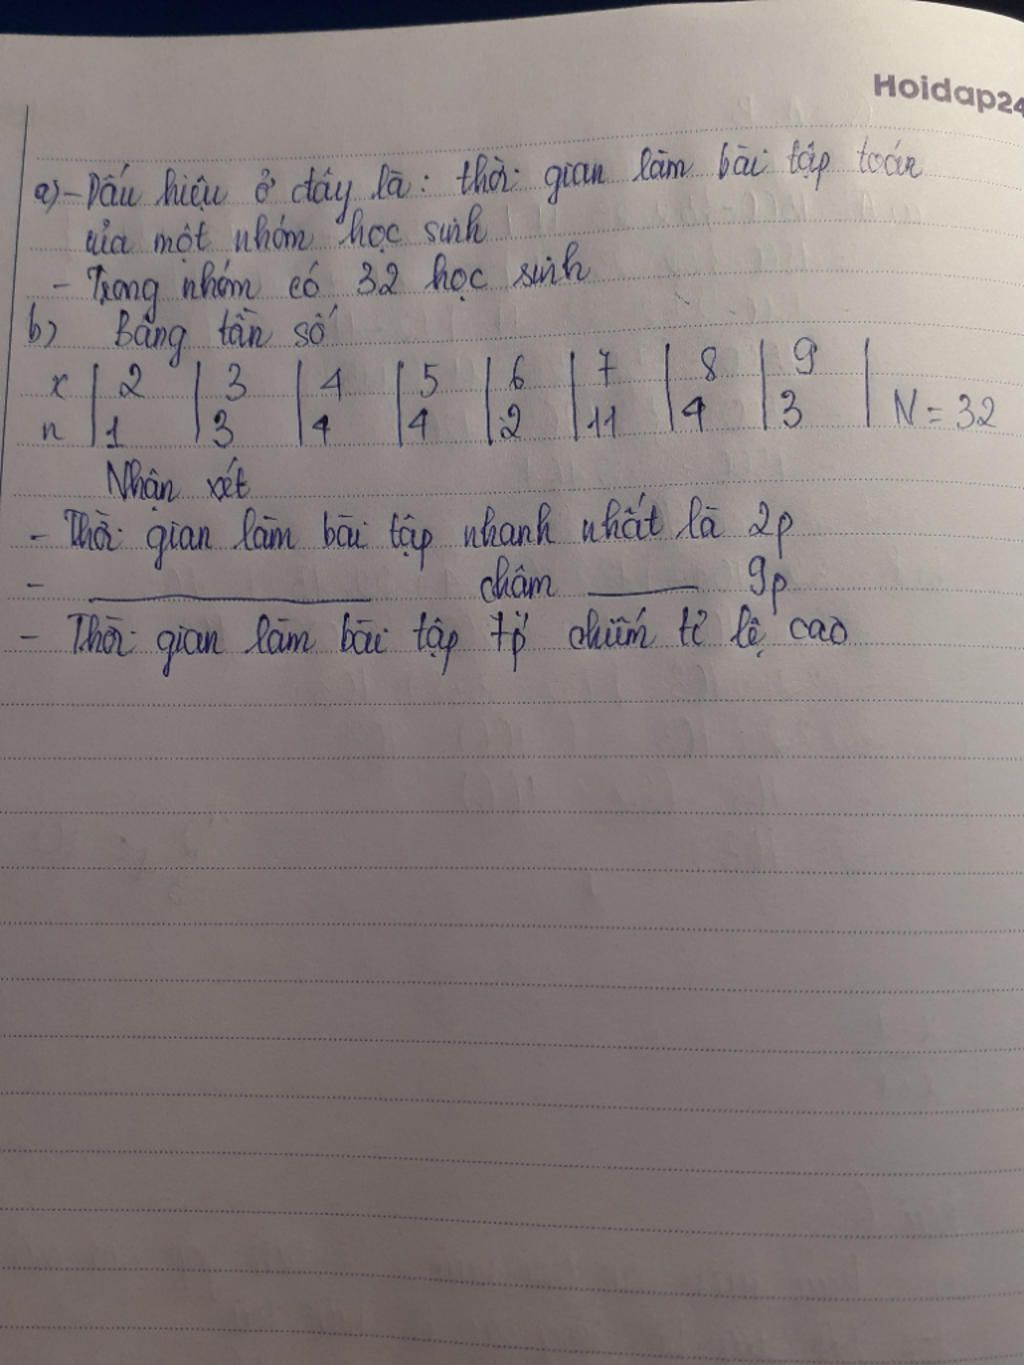 Hoidap24
a) - Dấu hiệu ở đây là: thời gian làm bài tập toán
của một nhóm học sinh
- Trong nhóm có 32 học sinh
b) Bảng tần số
x | 2 | 3 | 4 | 5 | 6 | 7 | 8 | 9 |
n | 1 | 3 | 4 | 4 | 2 | 11 | 4 | 3 | N = 32
Nhận xét
- Thời gian làm bài tập nhanh nhất là 2p
- ___ chậm ___ 9p
- Thời gian làm bài tập 7p chiếm tỉ lệ cao